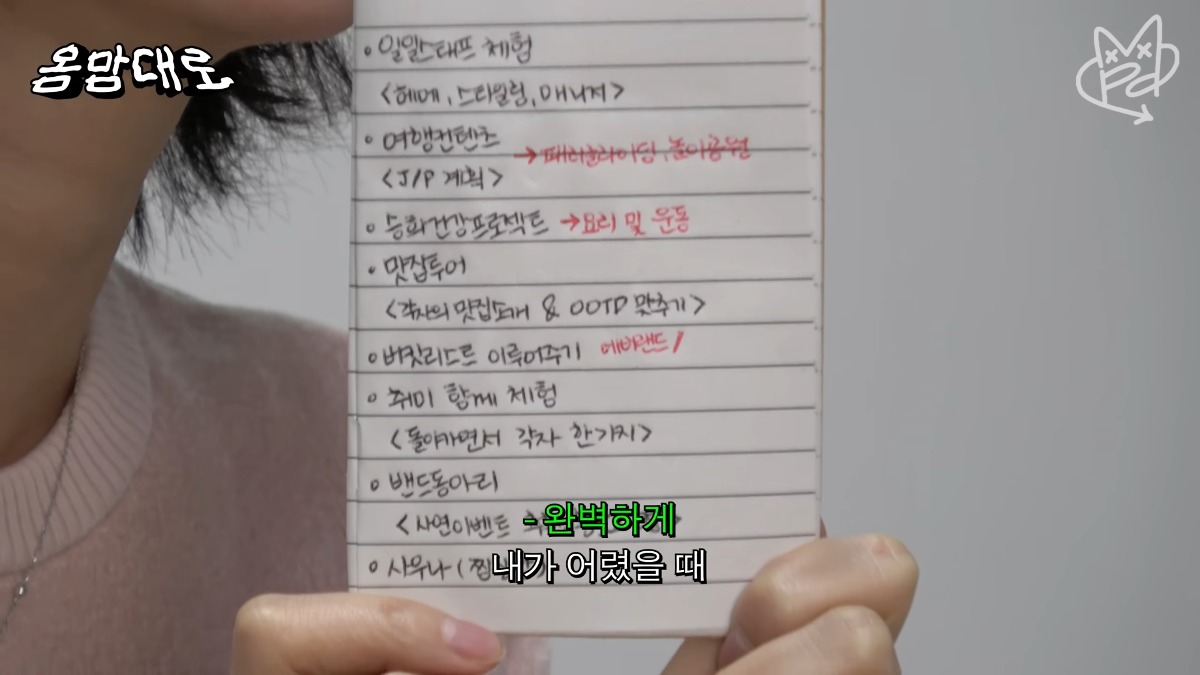 옴맘대로
• 일일스태프 체험
<헤메, 스타일링, 매니저>
• 여행컨텐츠 → 패러글라이딩, 놀이공원
<J/P 계획>
• 승화건강프로젝트 → 요리 및 운동
• 맛집투어
<각자의 맛집소개 & OOTD 맞추기>
• 버킷리스트 이루어주기 에버랜드/
• 취미 함께 체험
<돌아가면서 각자 한가지>
• 밴드동아리
<사연이벤트
- 완벽하게
• 사우나 (찜
내가 어렸을 때